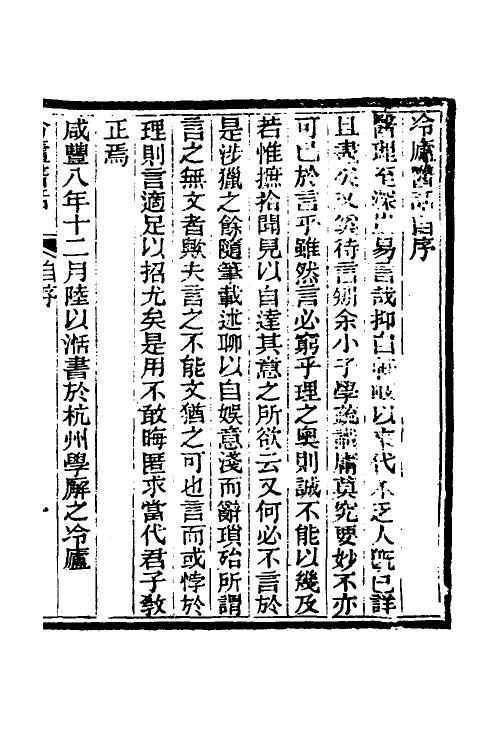 冷廬醫話自序
醫理至深豈易言哉抑自軒岐以來代不乏人旣已詳
且盡矣又奚待言矧余小子學疏識庸莫究要妙不亦
可已於言乎雖然言必窮乎理之奧則誠不能以幾及
若惟摭拾聞見以自達其意之所欲云又何必不言於
是涉獵之餘隨筆載述聊以自娛意淺而辭瑣殆所謂
言之無文者歟夫言之不能文猶之可也言而或悖於
理則言適足以招尤矣是用不敢晦匿求當代君子敎
正焉
咸豐八年十二月陸以湉書於杭州學廨之冷廬
冷廬醫話 自序 一